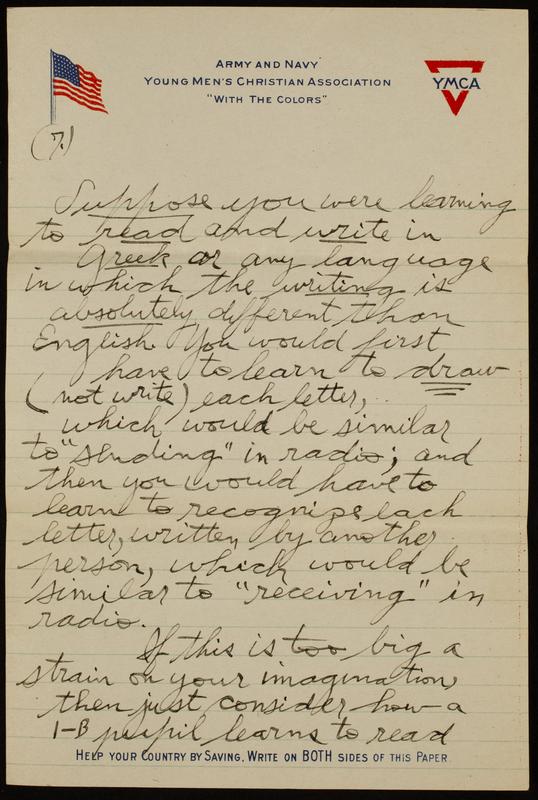 ARMY AND NAVY
YOUNG MEN'S CHRISTIAN ASSOCIATION
"WITH THE COLORS"
YMCA
(7.)
Suppose you were learning
to read and write in
Greek or any language
in which the writing is
absolutely different than
English. You would first
have to learn to draw
(not write) each letter,
which would be similar
to "sending" in radio; and
then you would have to
learn to recognize each
letter, written by another
person, which would be
similar to "receiving" in
radio.
If this is too big a
strain on your imagination,
then just consider how a
1-B pupil learns to read
HELP YOUR COUNTRY BY SAVING. WRITE ON BOTH SIDES OF THIS PAPER.